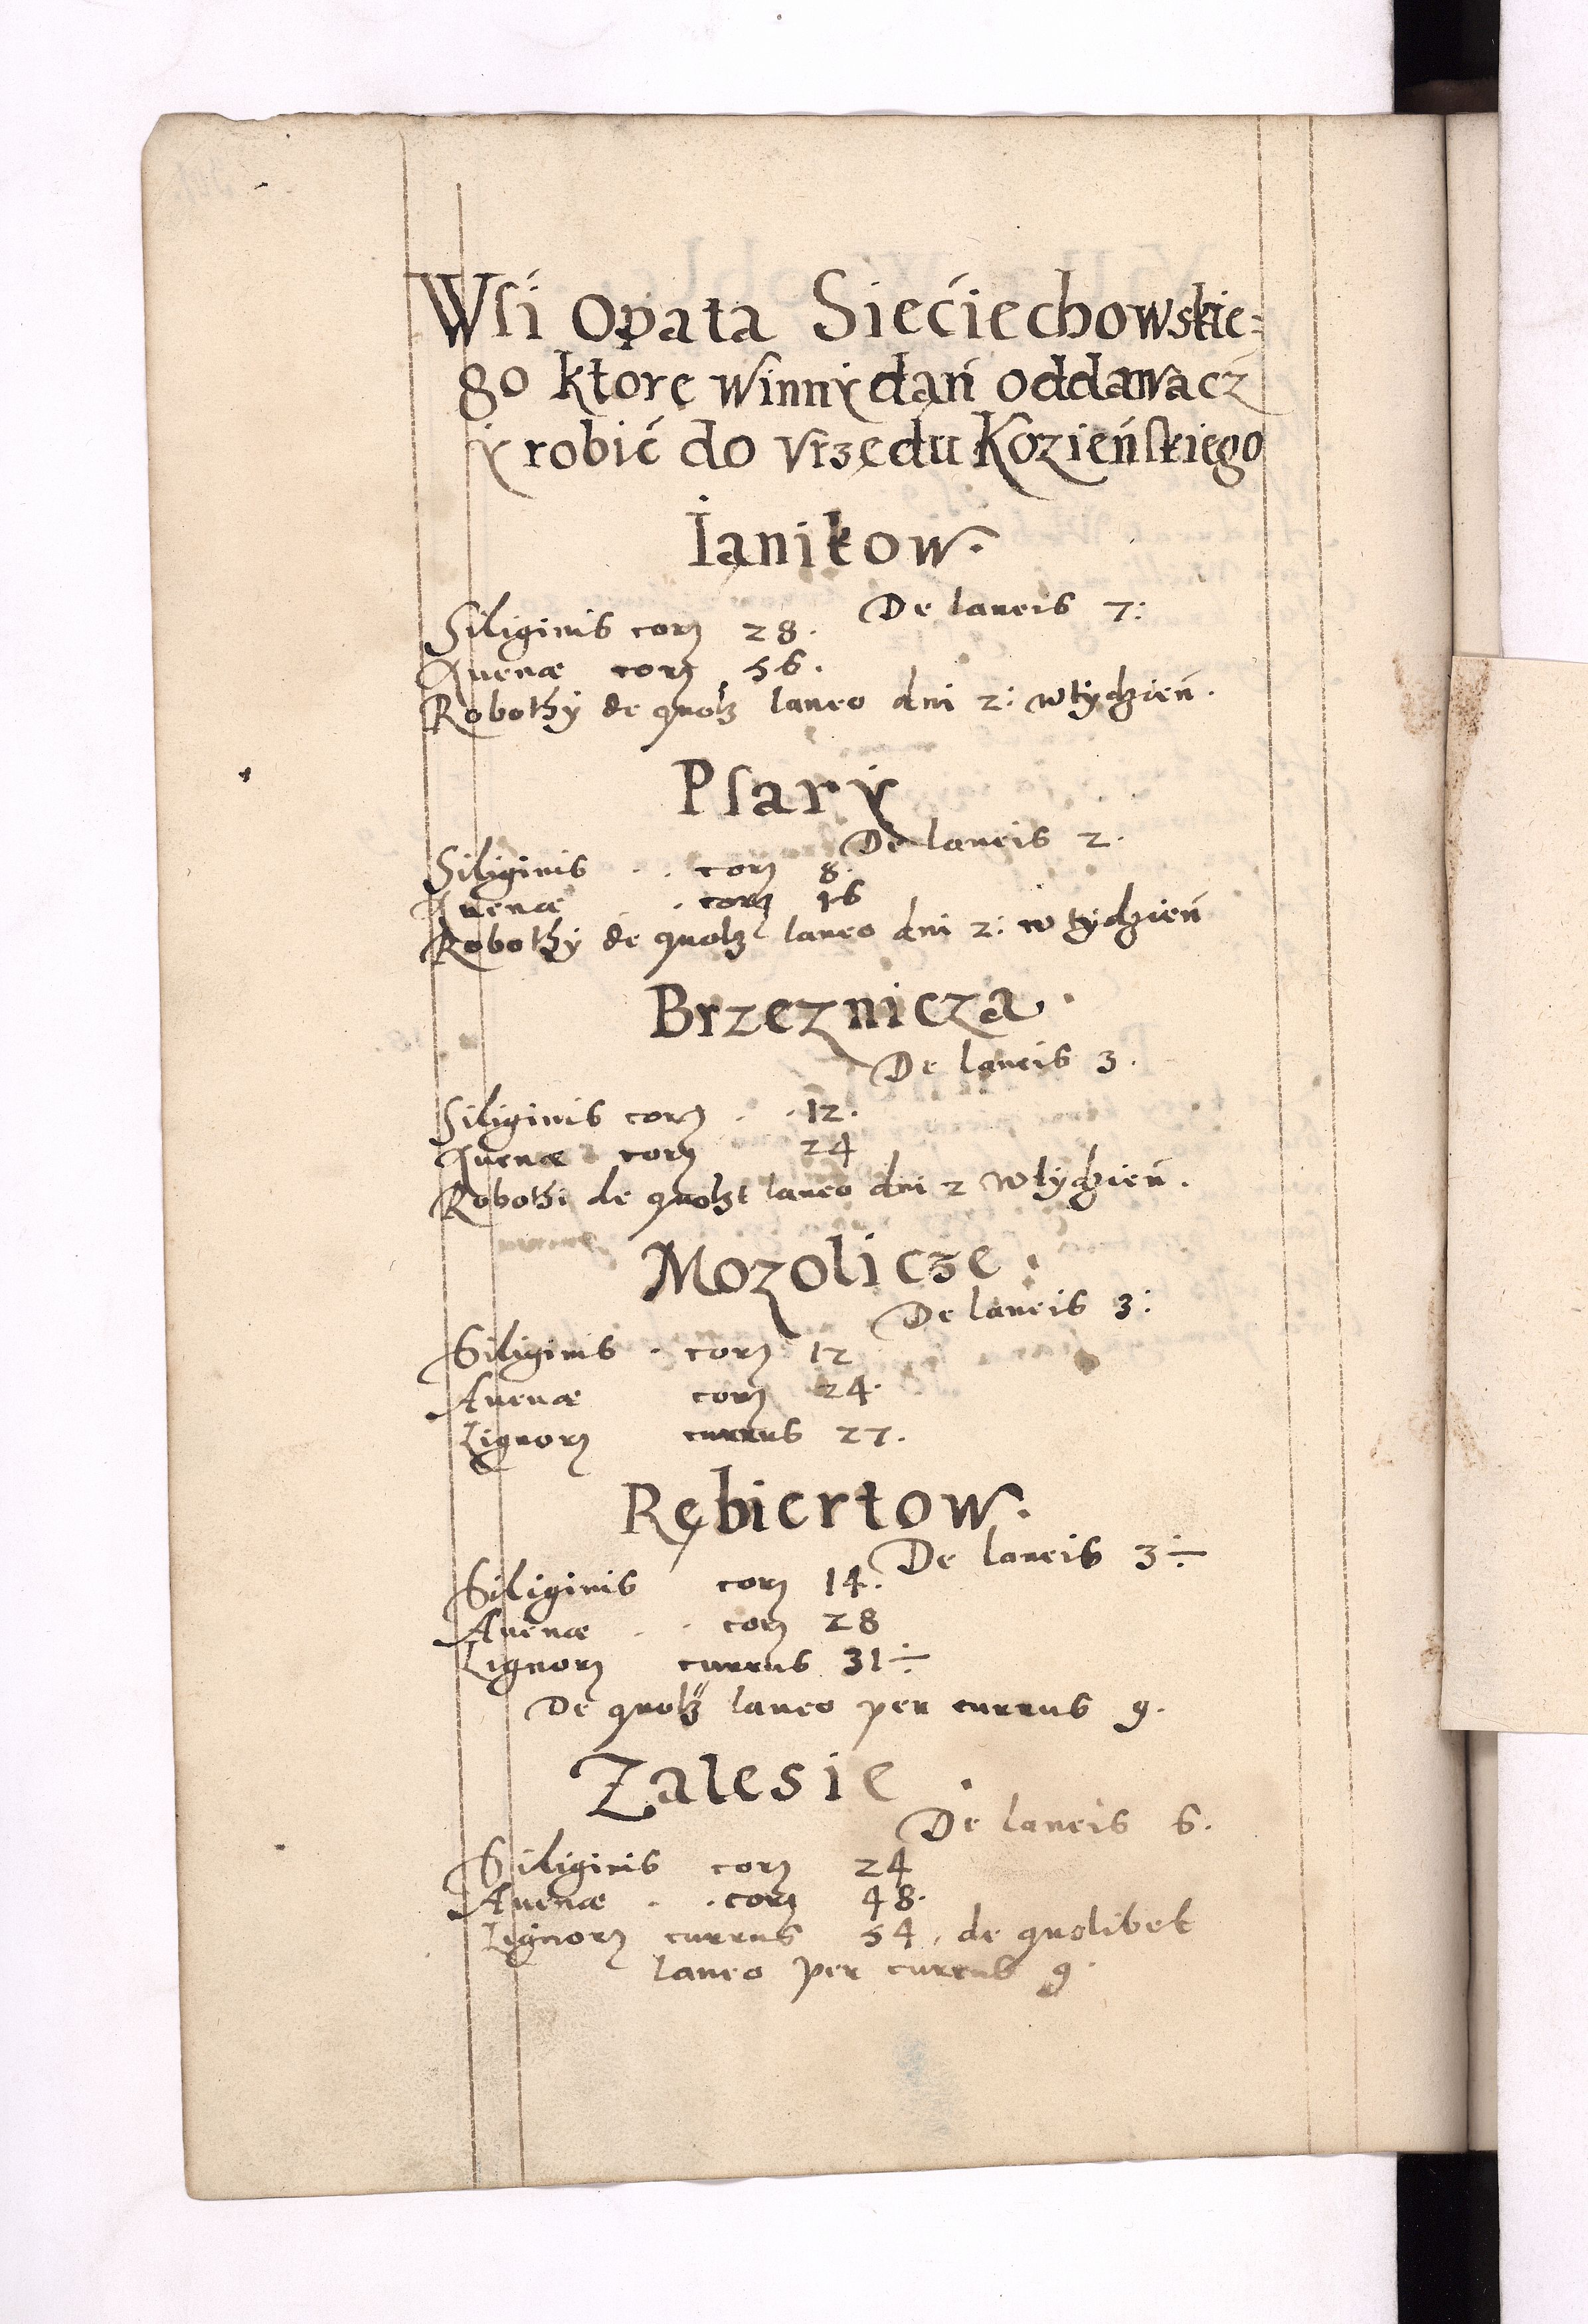 Wſi Opata Siećiechowskie=
go ktore winny dań oddawacz
y robić do Vrzędu Kozieńſkiego
Ianikow.
De laneis 7:
Siliginis corꝫ 28.
Auenæ corꝫ 56.
Robothy de quolꝫ laneo dni 2: w tydzień.
Pſary
De laneis 2.
Siliginis . . corꝫ 8.
Auenæ . corꝫ 16
Robothy de quolꝫ laneo dni 2: w tydzień
Brzeznicza.
De laneis 3.
Siliginis corꝫ . . 12.
Auenæ corꝫ 24
Robothi de quolꝫt laneo dni 2 w tydzień.
Mozolicze.
De laneis 3:
Siliginis . corꝫ 12
Auenæ corꝫ 24.
Lignorꝫ currus 27.
Rębiertow.
De laneis 3÷
Siliginis corꝫ 14.
Auenæ . . corꝫ 28
Lignorꝫ currus 31÷
De quolꝫ laneo per currus 9.
Zalesie.
De laneis 6.
Siliginis corꝫ 24
Auenæ . . corꝫ 48.
Lignorꝫ currus 54, de quolibet
laneo per currus 9.